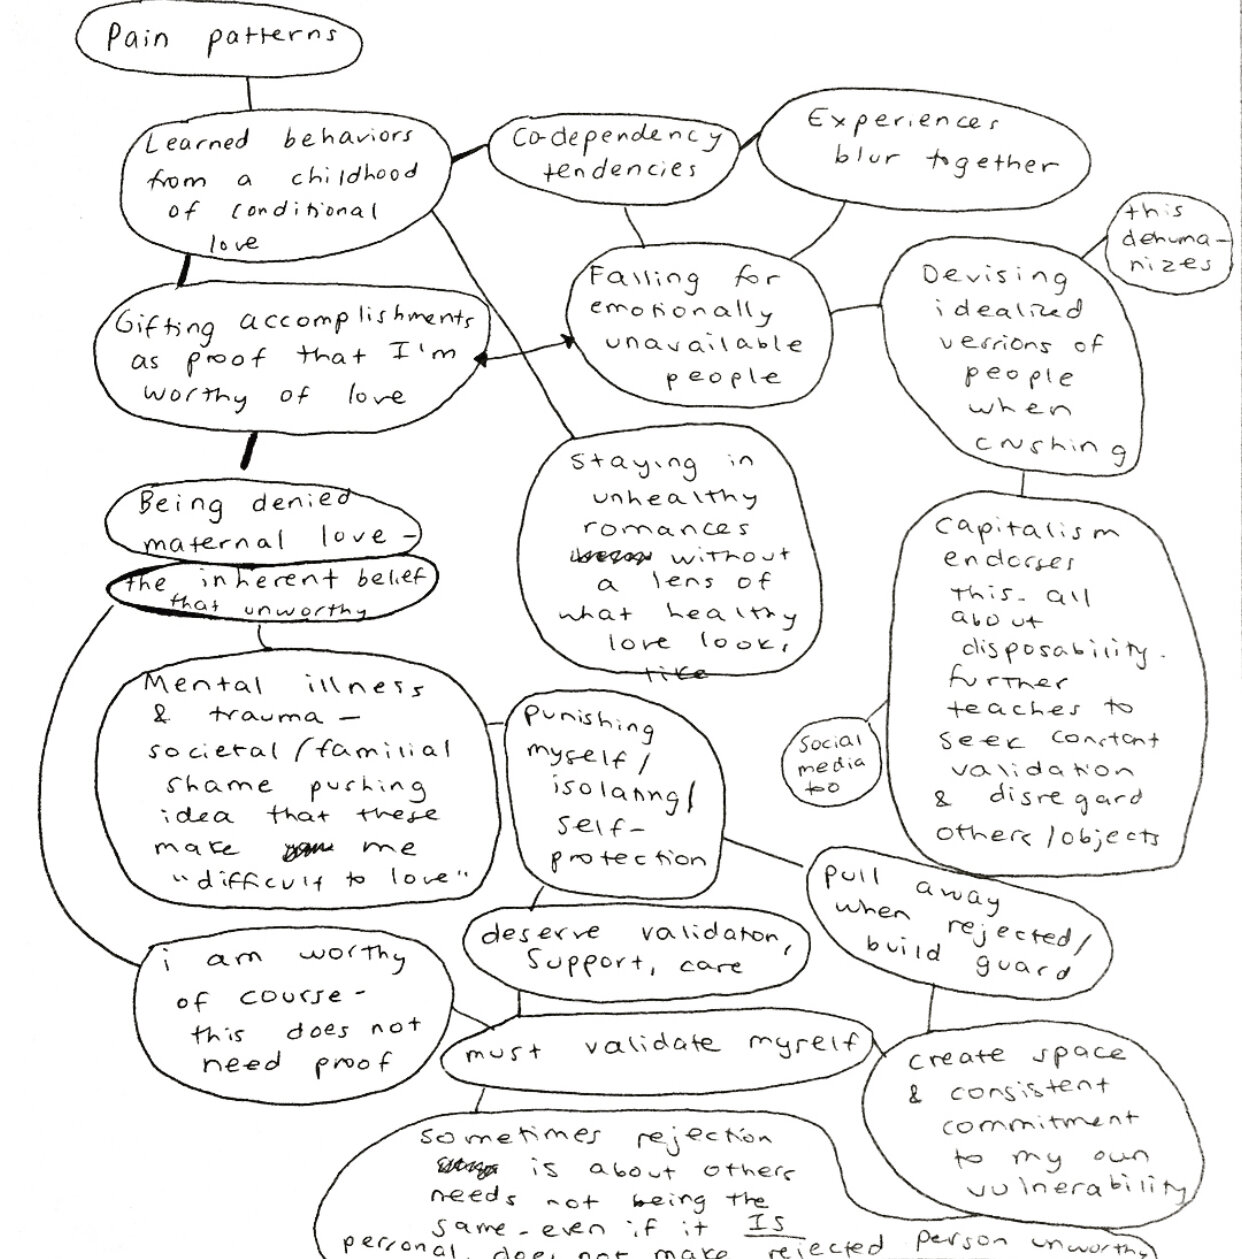 Pain patterns
Learned behaviors
from a childhood
of conditional
love
Co-dependency
tendencies
Experiences
blur together
this
dehuma-
nizes
Gifting accomplishments
as proof that I'm
worthy of love
Falling for
emotionally
unavailable
people
Devising
idealized
versions of
people
when
crushing
Being denied
maternal love -
the inherent belief
that unworthy
Staying in
unhealthy
romances
without
a lens of
what healthy
love looks
like
Capitalism
endorses
this - all
about
disposability.
further
teaches to
seek constant
validation
& disregard
others/objects
Social
media
too
Mental illness
& trauma -
societal/familial
shame pushing
idea that these
make me
"difficult to love"
punishing
myself/
isolating/
self-
protection
pull away
when rejected/
build guard
i am worthy
of course -
this does not
need proof
deserve validation,
support, care
must validate myself
create space
& consistent
commitment
to my own
vulnerability
sometimes rejection
is about others
needs not being the
same - even if it IS
personal, does not make rejected person unworthy